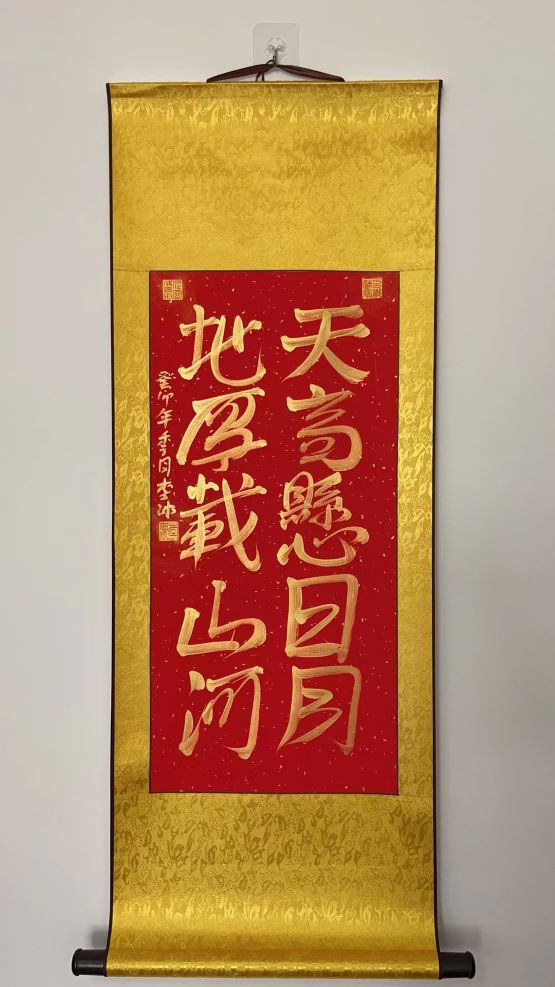 天高懸日月
地厚載山河
癸卯年季月李冰